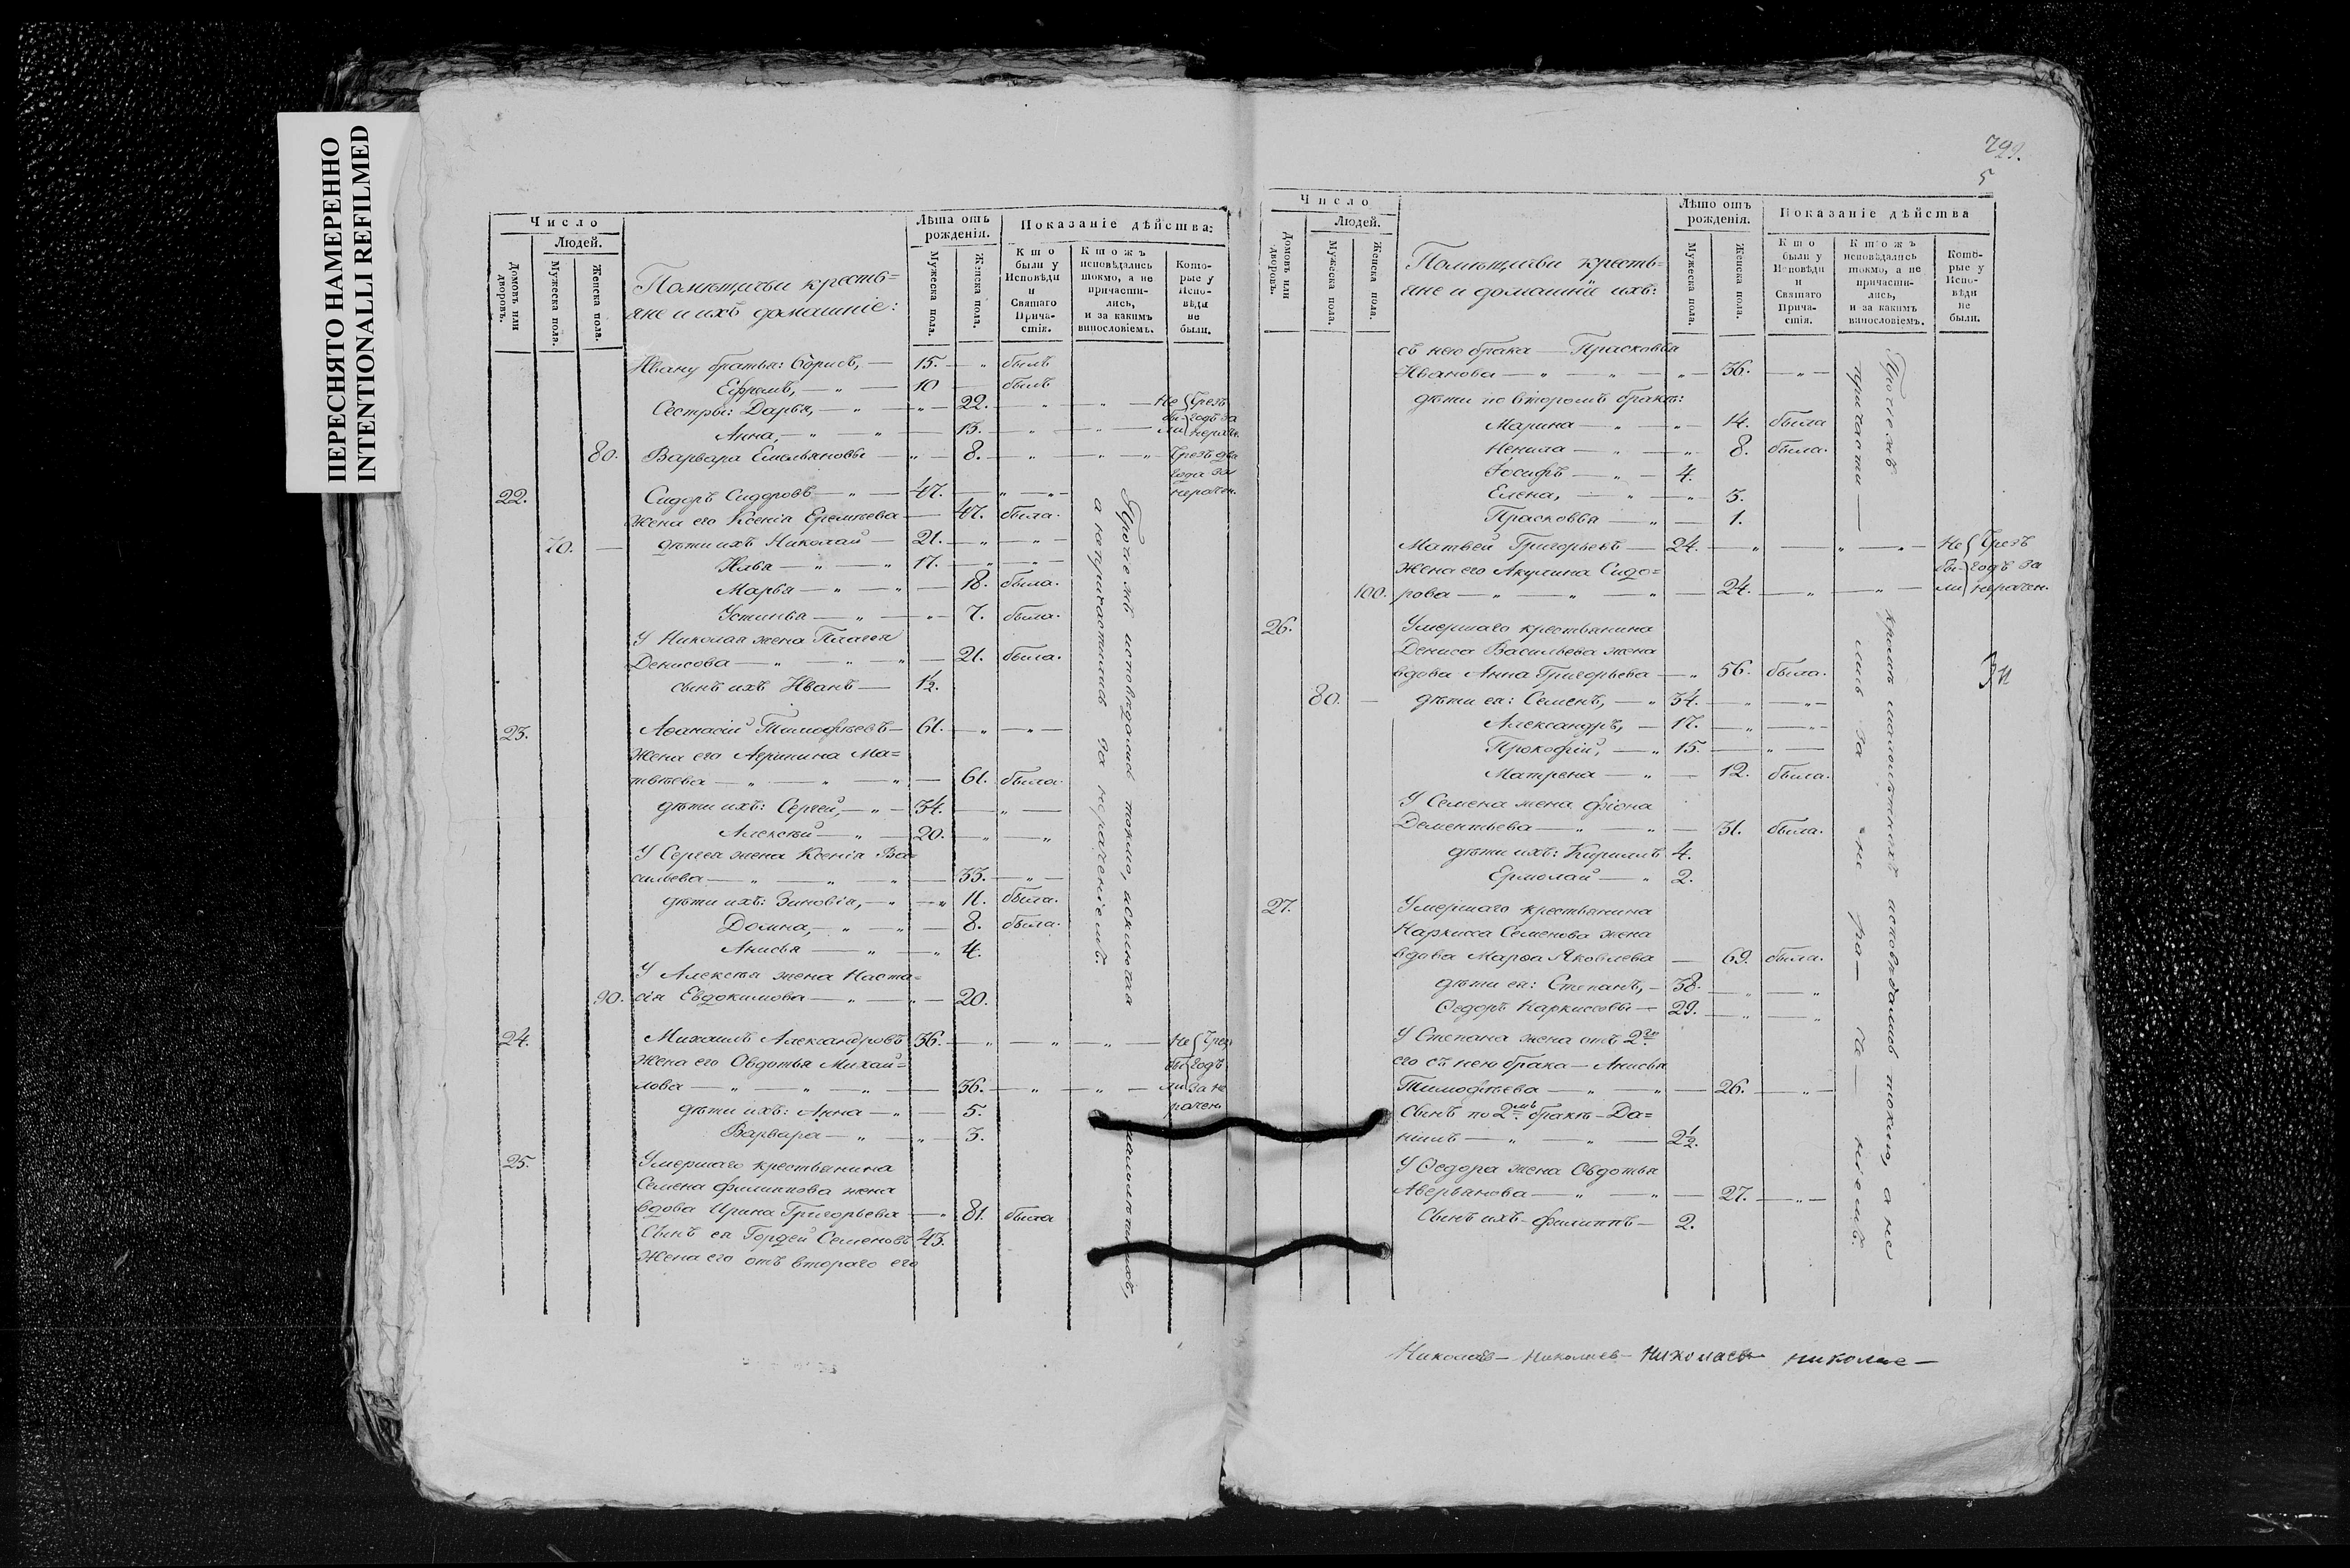 ПЕРЕСНЯТО НАМЕРЕННО
INTENTIONALLI REFILMED
Число
Людей.
Домовъ или дворовъ.
Мужеска пола.
Женска пола.
Помѣщичьи кресть=
яне и ихъ домашніе:
Лѣта отъ рожденія.
Мужеска пола.
Женска пола.
Показаніе дѣйства:
Кто были у Исповѣди и Святаго Прича-стія.
Ктожъ исповѣдались токмо, а не причасти-лись, и за какимъ винословіемъ.
Кото-рые у Испо-вѣди не были.
Ивану братья: Борисъ, — 15. — „ былъ
Ефремъ, — „ — 10 — былъ
Сестры: Дарья, — „ — „ — 22. — „ — „ — Не Чрезъ
Анна, — „ „ — 13. — „ — „ — бы- годъ за
ли нерач.
80. Варвара Емельяновы — „ — 8. — „ — „ „ Чрезъ два
года за
22. Сидоръ Сидоровъ — „ — 47. — „ — „ — нерачен.
Жена его Ксенія Еремѣева — 47. была.
70. — дѣти ихъ Николай — 21. — „ — „ —
Илья — „ — „ 17. — „ — „ —
Марья — „ — „ — 18. была.
Устинья — „ — „ — 7. была.
У Николая жена Пелагея
Денисова — „ — „ — „ — 21. была.
сынъ ихъ Иванъ — 1½.
23. Аѳанасій Тимофѣевъ — 61. — „ — „ —
Жена его Агрипина Ма=
твѣева — „ — „ — „ — 61. была.
дѣти ихъ: Сергей, — „ — 34. — „ —
Алексѣй — „ — 20. — „ — „
У Сергея жена Ксенія Ва=
сильева — „ — „ — „ — 33. — „ —
дѣти ихъ: Зиновія, — „ — „ 11. была.
Домна, — „ — „ — 8. была.
Анисья — „ — „ 4.
У Алексѣя жена Наста=
90. сія Евдокимова — „ — „ — 20.
24. Михаилъ Александровъ 36. — „ — „ — „ — Не Чрез
Жена его Овдотья Михай=
бы годъ
лова — „ — „ — „ — 36. — „ — „ — ли за не
дѣти ихъ: Анна — „ — 5. рачен
Варвара — „ — „ — 3.
25. Умершаго крестьянина
Семена Филиппова жена
вдова Ирина Григорьева — „ 81. была
Сынъ ея Гордей Семеновъ 43.
Жена его отъ втораго его
Протчежъ исповѣдались токмо, исключая малолѣтнихъ,
а не причастились за нераченіемъ.
5
Число
Людей.
Домовъ или дворовъ.
Мужеска пола.
Женска пола.
Помѣщичьи кресть=
яне и домашніе ихъ:
Лѣто отъ рожденія.
Мужеска пола.
Женска пола.
Показаніе дѣйства
Кто были у Исповѣди и Святаго Прича-стія.
Ктожъ исповѣдались токмо, а не причасти-лись, и за какимъ винословіемъ.
Кото-рые у Испо-вѣди не были.
съ нею брака — Прасковья
Иванова — „ — „ — „ — 36. — „ —
дѣти по второмъ бракѣ:
Марина — „ — „ — 14. была
Ненила — „ — „ 8. была.
Іосифъ — „ — 4.
Елена, — „ — „ 3.
Прасковья — „ — 1.
Матвей Григорьевъ — 24. — „ — „ — „ — Не Чрезъ
Жена его Акулина Сидо= бы- годъ за
100. рова — „ — „ — „ — 24. — „ — „ — ли нерачен.
26. Умершаго крестьянина
Дениса Васильева жена
вдова Анна Григорьева — „ 56. была.
80. — дѣти ея: Семенъ, — „ 34. — „ — „ —
Александръ, — 17. — „ — „ —
Прокофій, — „ 15. — „ —
Матрена — „ — 12. была.
У Семена жена Фіона
Дементьева — „ — „ — 31. была.
дѣти ихъ: Кириллъ 4.
Ермолай — „ 2.
27. Умершаго крестьянина
Наркисса Семенова жена
вдова Марѳа Яковлева — 69. была.
дѣти ея: Степанъ, — 38. — „ — „
Ѳедоръ Наркиссовы — 29. — „ — „
У Степана жена отъ 2го
его съ нею брака — Анисья
Тимофѣева — „ — „ — 26. — „ —
Сынъ по 2мъ бракѣ — Да=
нiилъ — „ — „ — 2½.
У Ѳедора жена Овдотья
Аверьянова — „ — „ — 27. — „ —
Сынъ ихъ — Филиппъ — 2.
Протчежъ кромѣ малолѣтнихъ исповѣдались токмо, а не
причасти — лись за не ра — че — ніемъ.
Николаевъ — Николаев — Николаевъ николае —